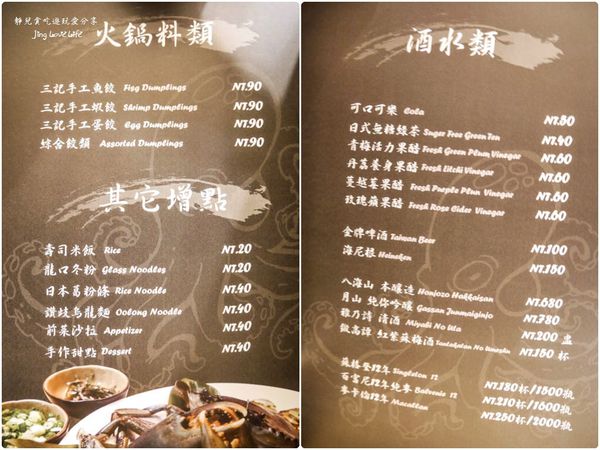 靜兒貪吃遊玩愛分享
Jing Love Life
火鍋料類
三記手工魚餃 Fisg Dumplings NT.90
三記手工蝦餃 Shrimp Dumplings NT.90
三記手工蛋餃 Egg Dumplings NT.90
綜合餃類 Assorted Dumplings NT.90
其它增點
壽司米飯 Rice NT.20
龍口冬粉 Glass Noodles NT.20
日本葛粉條 Rice Noodle NT.40
讚岐烏龍麵 Oolong Noodle NT.40
前菜沙拉 Appetizer NT.40
手作甜點 Dessert NT.40
酒水類
可口可樂 Cola NT.50
日式無糖綠茶 Suger Free Green Tea NT.40
青梅活力果醋 Fresh Green Plum Vinegar NT.60
丹荔養身果醋 Fresh Litchi Vinegar NT.60
蔓越莓果醋 Fresh Purple Plun Vinegar NT.60
玫瑰蘋果醋 Fresh Rose Cider Vinegar NT.60
金牌啤酒 Taiwan Beer NT.100
海尼根 Heineken NT.150
八海山 本釀造 Honjozo Hakkaisan NT.680
月山 純你吟釀 Gassan Junmaiginjo NT.780
雅乃詩 清酒 Miyabi No Uta NT.200 盅
傲高譚 紅紫蘇梅酒 NT.150 杯
蘇格登12年 Singleton 12 NT.180杯/1500瓶
百富尼12年純麥 Balvenie 12 NT.210杯/1600瓶
麥卡倫12年 Macallan NT.250杯/2000瓶